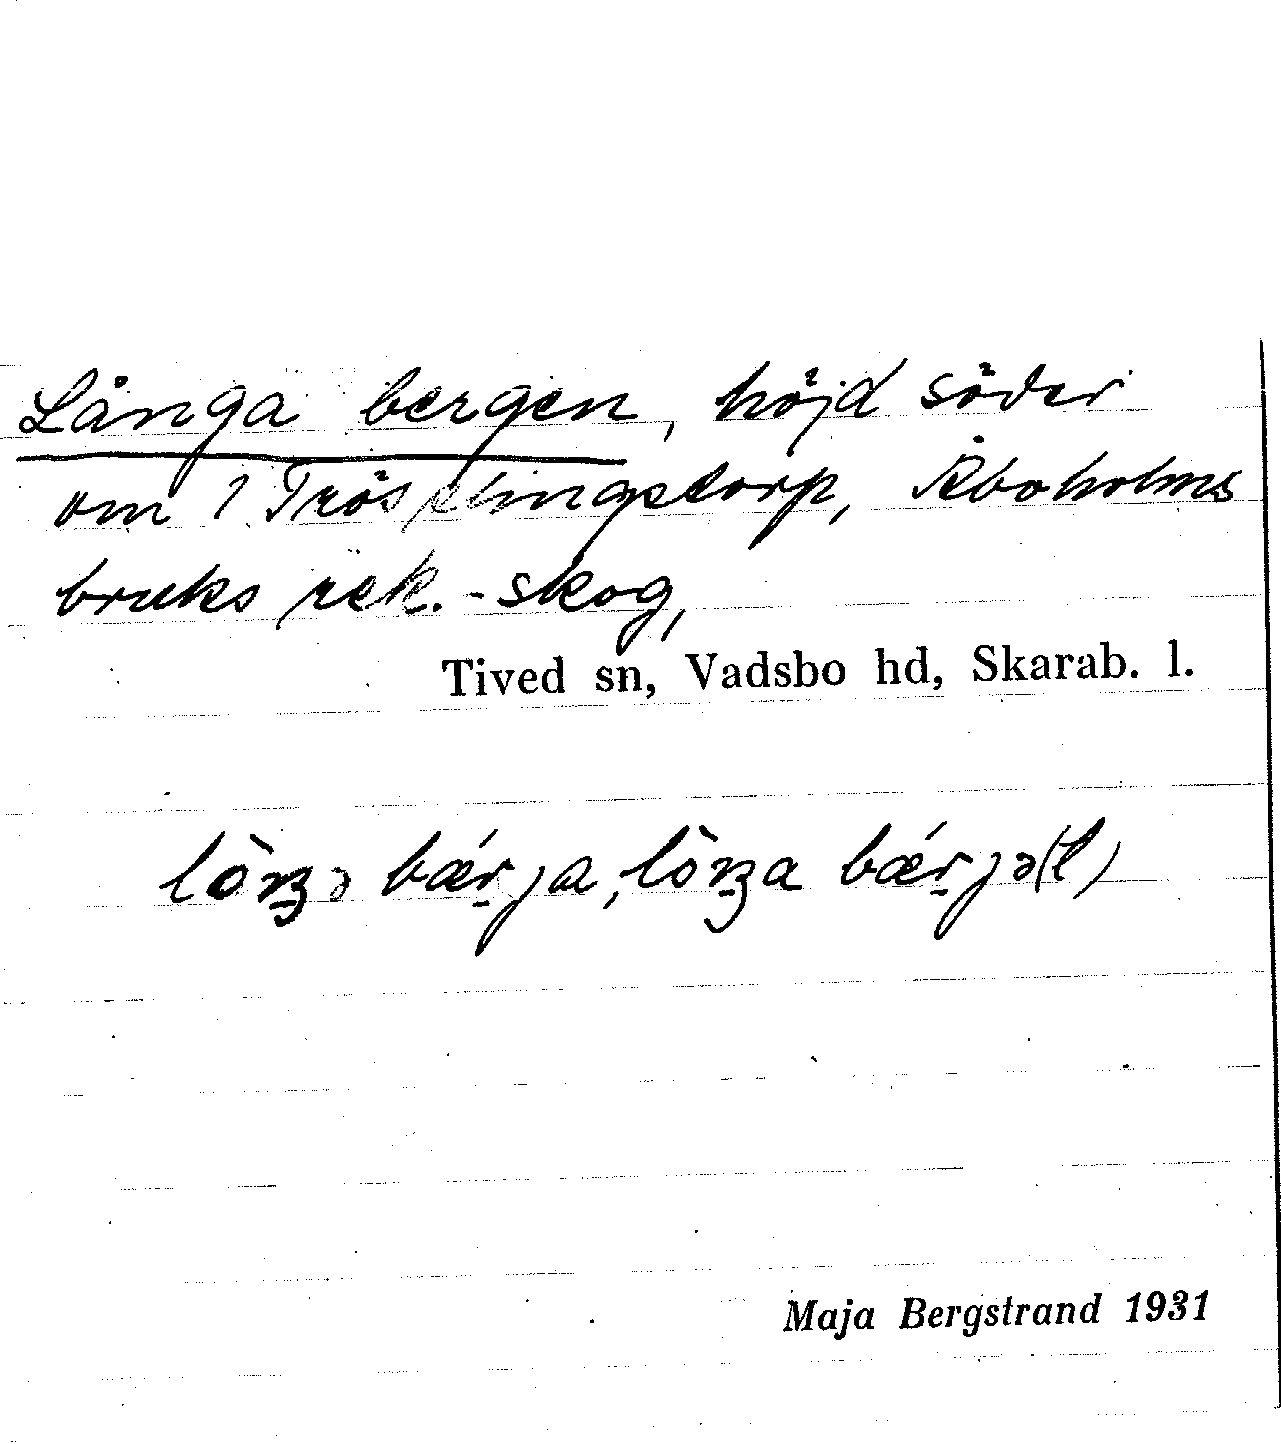 Långa bergen, höjd söder
om 1 Tröslingstorp, Åboholms
bruks rek.-skog,
Tived sn, Vadsbo hd, Skarab. l.
lòŋə bǽrja, lòŋa bǽrjə(t)
Maja Bergstrand 1931